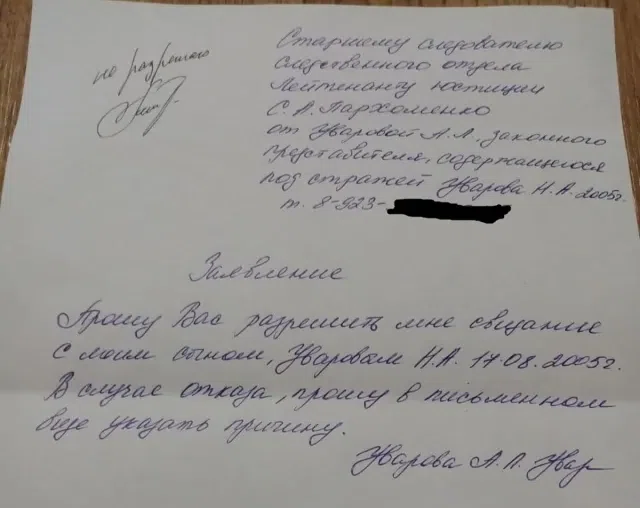 не разрешаю
Старшему следователю
следственного отдела
Лейтенанту юстиции
С. А. Пархоменко
от Уваровой А.Л., законного
представителя, содержащегося
под стражей Уварова Н.А. 2005г.
т. 8-923-
Заявление
Прошу Вас разрешить мне свидание
с моим сыном, Уваровым Н.А. 17.08.2005г.
В случае отказа, прошу в письменном
виде указать причину.
Уварова А.Л.